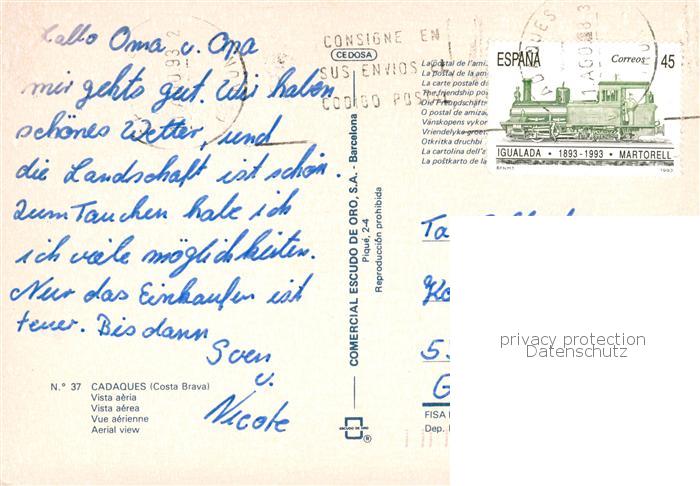 Hallo Oma u. Opa
mir gehts gut. Wir haben
schönes Wetter, und
die Landschaft ist schön.
Zum Tauchen habe ich
ich viele möglichkeiten.
Nur das Einkaufen ist
teuer. Bis dann
Sven
u.
Nicole
N.° 37 CADAQUES (Costa Brava)
Vista aèria
Vista aérea
Vue aérienne
Aerial view
CONSIGNE EN
SUS ENVIOS
CODIGO POSTAL
CEDOSA
COMERCIAL ESCUDO DE ORO, S.A. - Barcelona
Piqué, 2-4
Reproducción prohibida
ESCUDO DE ORO
®
La postal de l'ami
La postal de la am
La carte postale d
The friendship po
Die Freundschaft
O postal de amiza
Vänskapens vyko
Vriendelyke groe
Otkritka druchbi
La cartolina dell'a
La postkarto de la
ESPAÑA Correos 45
IGUALADA · 1893-1993 · MARTORELL
1993
FISA
Dep.
privacy protection
Datenschutz